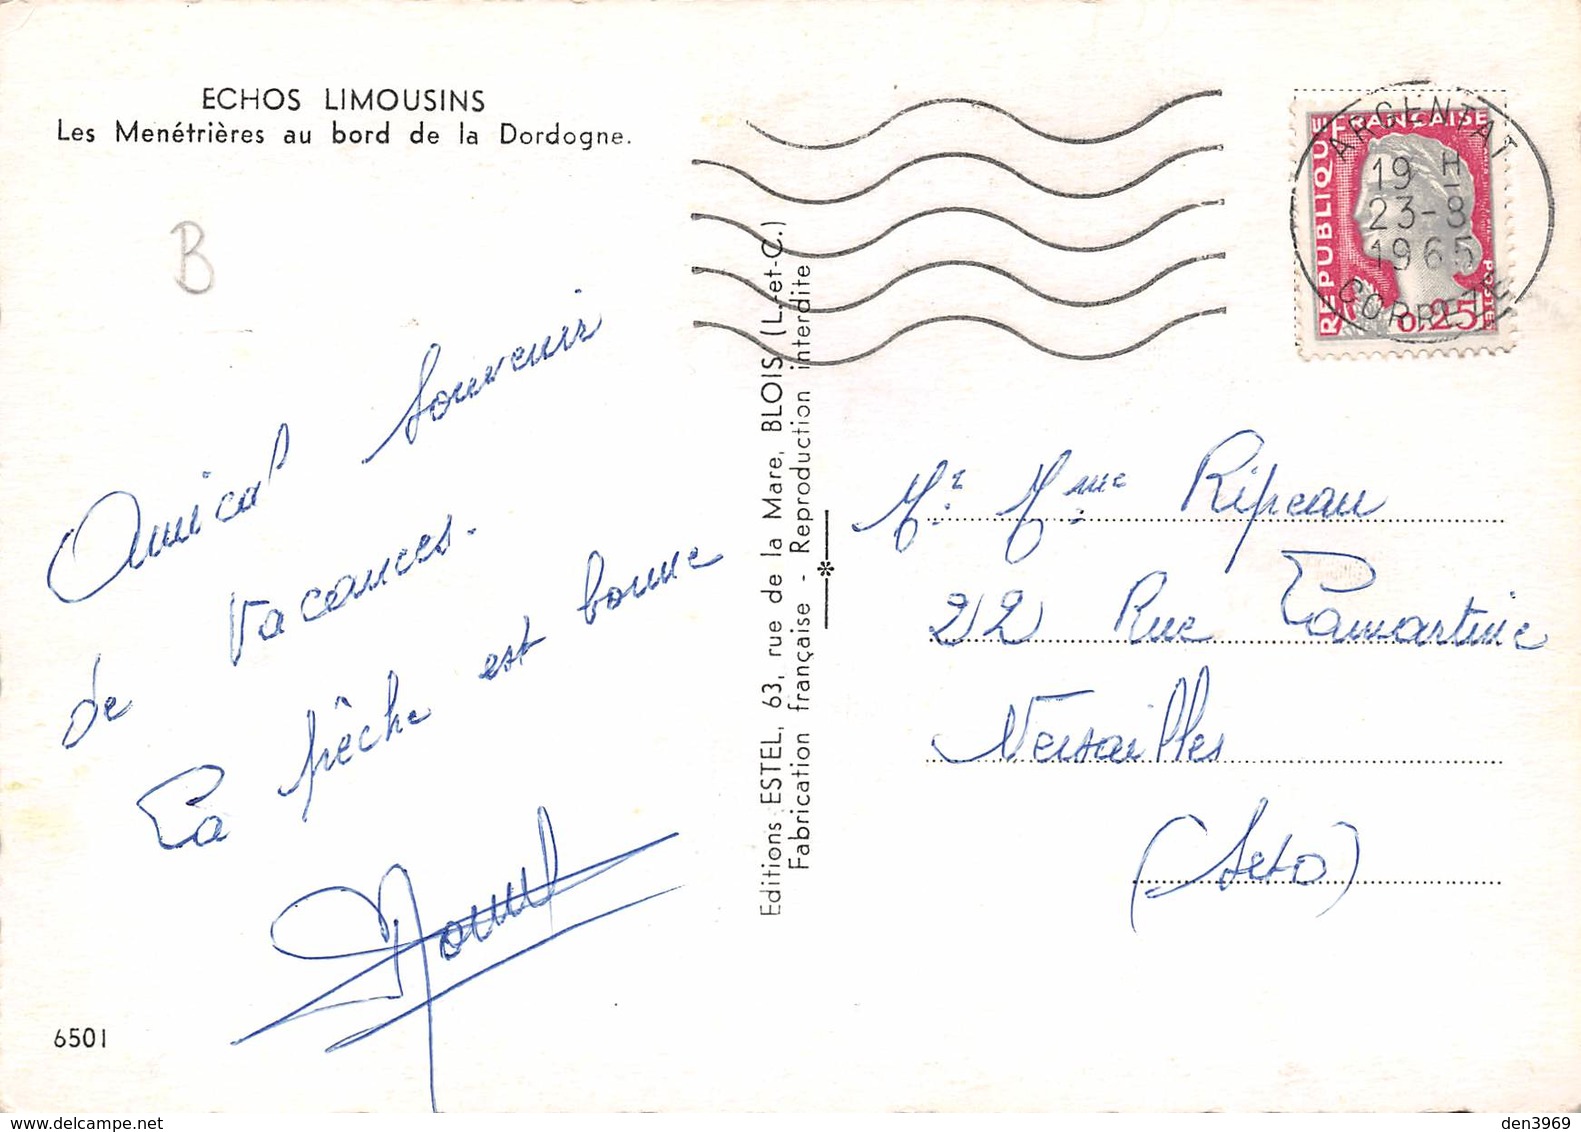 ECHOS LIMOUSINS
Les Menétrières au bord de la Dordogne.
B
Amical souvenir
de vacances.
La pêche est bonne
6501
Editions ESTEL, 63, rue de la Mare, BLOIS (L.-et-C.)
Fabrication française - Reproduction interdite
REPUBLIQUE FRANÇAISE
0,25
POSTES
ARGENTAT
19 H
23-8
1965
CORREZE
Mr. Mme Ripeau
22 Rue Lamartine
Versailles
(Seto)
den3969